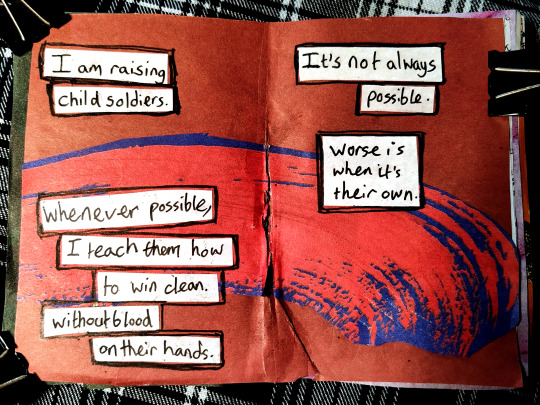 I am raising
child soldiers.
Whenever possible,
I teach them how
to win clean.
without blood
on their hands.
It's not always
possible.
Worse is
when it's
their own.